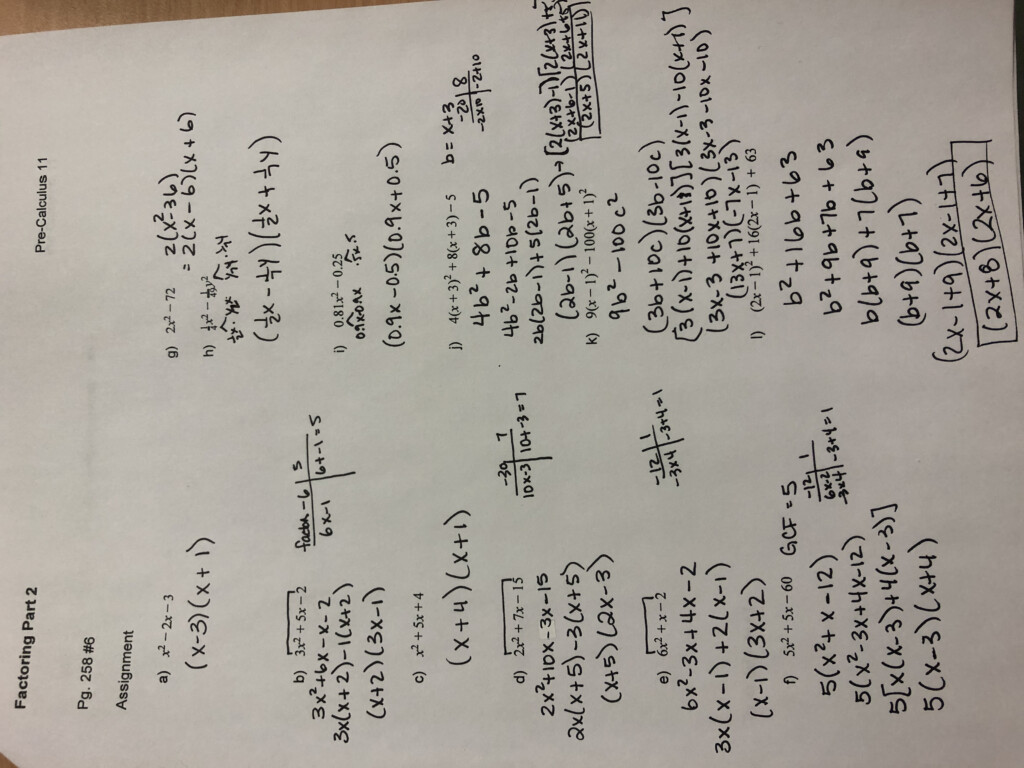 Factoring Part 2
Pre-Calculus 11
Pg. 258 #6
Assignment
a) x² − 2x − 3
(x-3)(x+1)
b) 3x² + 5x − 2
factor -6 | 5
6x-1 | 6+-1=5
3x²+6x-x-2
3x(x+2)-1(x+2)
(x+2)(3x-1)
c) x² + 5x + 4
(x+4)(x+1)
d) 2x² + 7x − 15
-30 | 7
10x-3 | 10+-3=7
2x²+10x-3x-15
2x(x+5)-3(x+5)
(x+5)(2x-3)
e) 6x² + x − 2
-12 | 1
-3x4 | -3+4=1
6x²-3x+4x-2
3x(x-1)+2(x-1)
(x-1)(3x+2)
f) 5x² + 5x − 60 GCF=5
-12 | 1
6x-2
-3x4 | -3+4=1
5(x²+x-12)
5(x²-3x+4x-12)
5[x(x-3)+4(x-3)]
5(x-3)(x+4)
g) 2x² − 72 = 2(x²-36)
= 2(x-6)(x+6)
h) ½x² − y²
(½x-¼y)(½x+¼y)
i) 0.81x² − 0.25
0.9x 0.9x .5x.5
(0.9x-0.5)(0.9x+0.5)
j) 4(x + 3)² + 8(x + 3) − 5 b=x+3
-20 | 8
-2x10 | -2+10
4b²+8b-5
4b²-2b+10b-5
2b(2b-1)+5(2b-1)
(2b-1)(2b+5)→[2(x+3)-1][2(x+3)+5
(2x+6-1)(2x+6+5)
(2x+5)(2x+11)
k) 9(x − 1)² − 100(x + 1)²
9b²-100c²
(3b+10c)(3b-10c)
[3(x-1)+10(x+1)][3(x-1)-10(x+1)]
(3x-3+10x+10)(3x-3-10x-10)
(13x+7)(-7x-13)
l) (2x − 1)² + 16(2x − 1) + 63
b²+16b+63
b²+9b+7b+63
b(b+9)+7(b+9)
(b+9)(b+7)
(2x-1+9)(2x-1+7)
(2x+8)(2x+6)